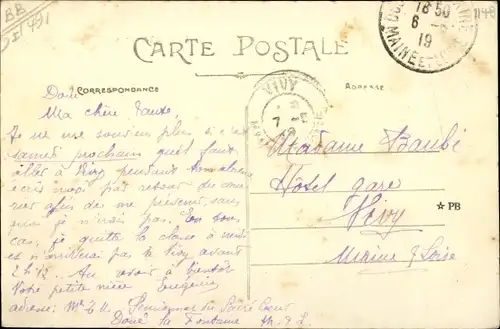 BB
I 491
1148
18 50
6
19
MAINE ET LOIRE
CARTE POSTALE
CORRESPONDANCE
ADRESSE
VIVY
7
Doué
Ma chère Tante,
Je ne me souviens plus si c'est
samedi prochain qu'il faut
aller à Vivy
écris moi par retour de cour
rier afin de me prévenir, sans
quoi je n'irais pas. En tous
cas, je quitte la classe à midi
et n'arriverai pas à Vivy avant
2 h 1/2. Au revoir à bientôt
Votre petite nièce Eugénie
adresse: Pensionnat du Sacré Coeur
Doué la Fontaine M. & L.
Madame Baubé
Hôtel gare
Vivy
Maine & Loire
☆ PB